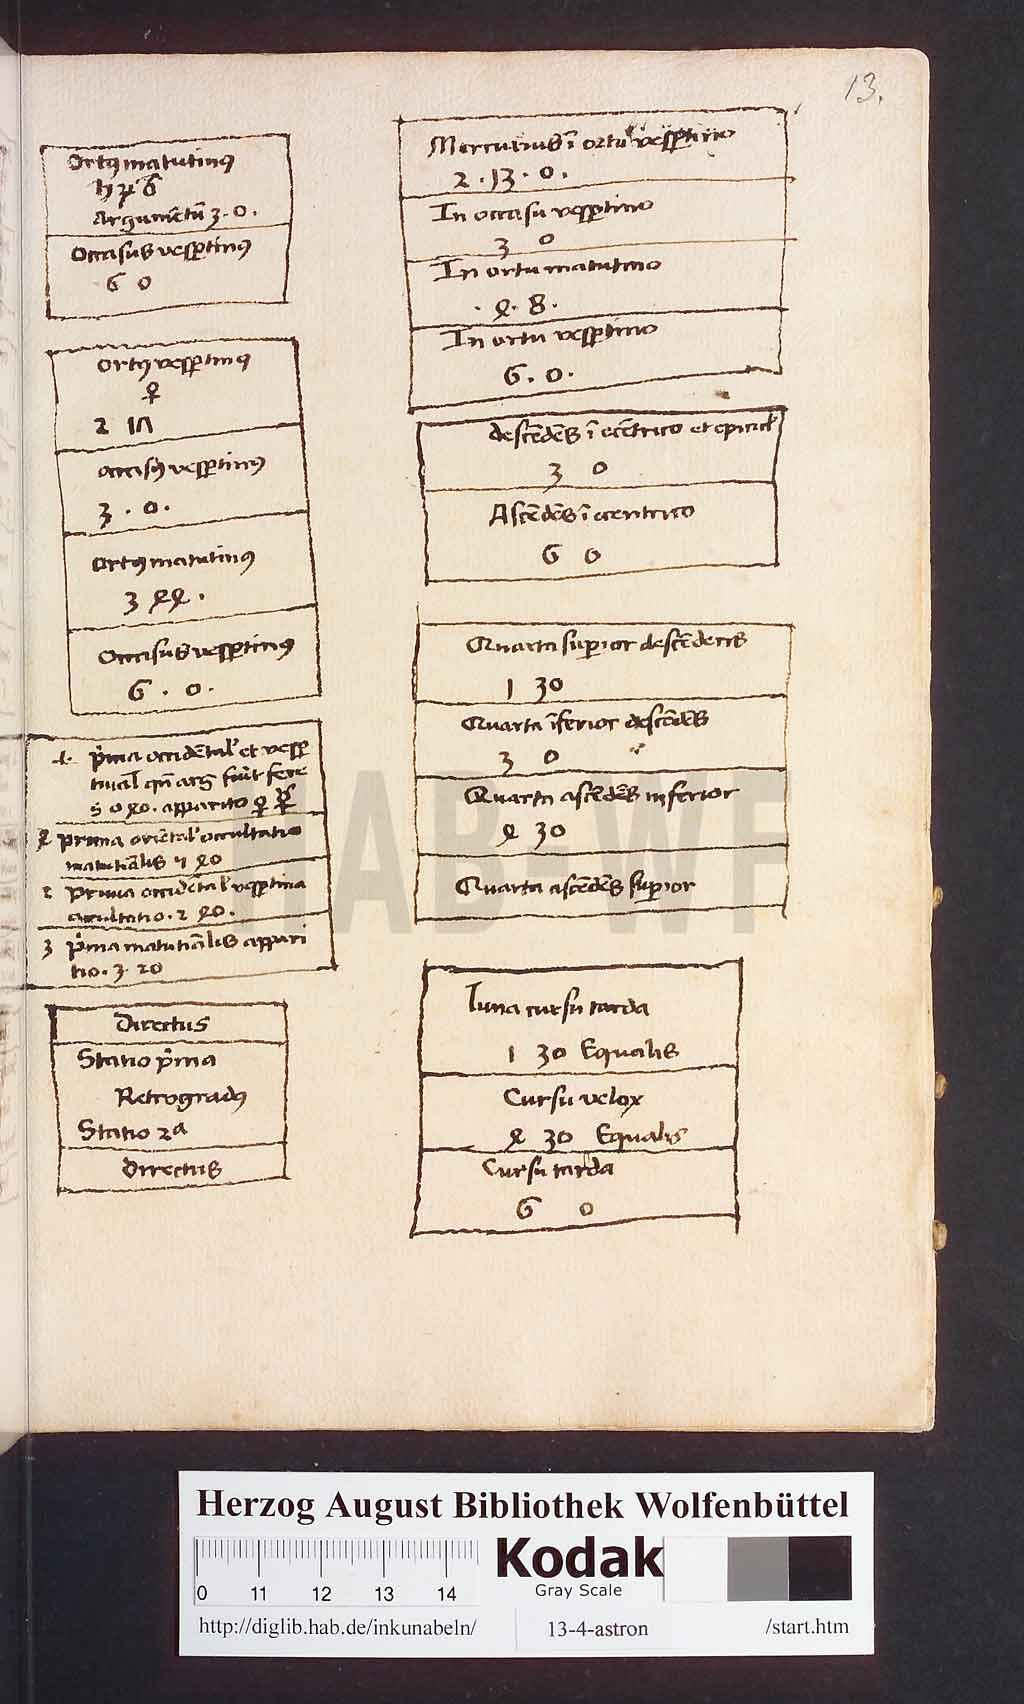 13.
Ortꝰ matutinꝰ
♄ ♃ ♂
Argumẽtũ 3 . 0 .
Occasus vesꝑtinꝰ
6 0
Ortꝰ vesꝑtinꝰ
♀
2 1Λ
occasꝰ vesꝑtinꝰ
3 . 0 .
Ortꝰ matutinꝰ
3 ꝝꝝ .
Occasus vesꝑtinꝰ
6 . 0 .
p̃ma occidẽtal' et vesꝑ
tinal' qñ arg̃ fũt fere
5 0 ꝝ0 . apparitio ♀ ☿
ꝝ prima oriẽtal' occultatio
matutiãlis 4 ꝝ0
2 prima occidẽtal' vesꝑtina
occultatio . 2 ꝝ0 .
3 p̃ma matutiãlis appari
tio . 3 . 20
Directus
Statio p̃ma
Retrogradꝰ
Statio 2ᵃ
Directus
Mercurius ĩ ortu vesꝑtino
2 . 13 . 0 .
In occasu vesꝑtino
3 0
In ortu matutino
. ꝝ . 8 .
In ortu vesꝑtino
6 . 0 .
descẽdẽs ĩ ecẽtrico et epicicl'
3 0
Ascẽdẽs ĩ ecentrico
6 0
Quarta superior descẽdens
1 30
Quarta ĩferior descẽdẽs
3 0
Quarta ascẽdẽs inferior
ꝝ 30
Quarta ascẽdẽs supior
Luna cursu tarda
1 30 Equalis
Cursu velox
ꝝ 30 Equalis
Cursu tarda
6 0
HAB-WF
Herzog August Bibliothek Wolfenbüttel
0 11 12 13 14
Kodak
Gray Scale
http://diglib.hab.de/inkunabeln/ 13-4-astron /start.htm